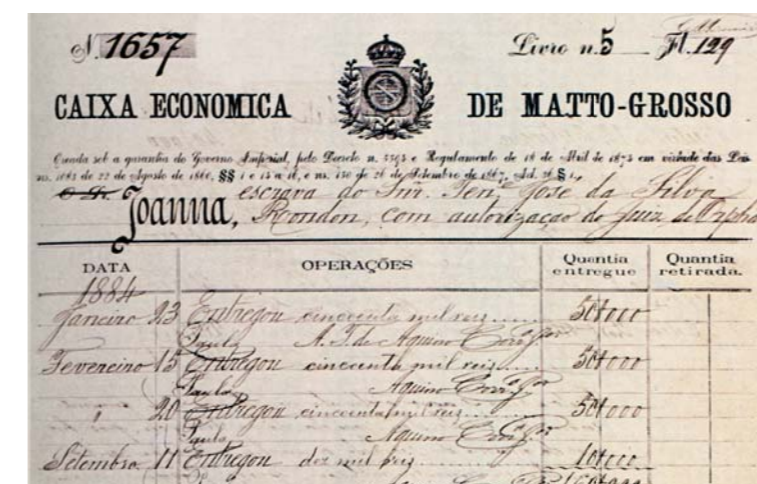 N. 1657
Livro n. 5 Fl. 129
CAIXA ECONOMICA DE MATTO-GROSSO
Creada sob a garantia do Governo Imperial, pelo Decreto n. e Regulamento de 18 de Abril de 1874 em virtude das Leis
ns. 1083 de 22 de Agosto de 1860, §§ 1 e 15 a 18, e ns. de de Setembro de 1867, Art. 36 § 1,
escrava do Snr. Tene Jose da Silva
Joanna, Rondon, com autorização do Juiz de Orpha
DATA OPERAÇÕES Quantia entregue Quantia retirada.
1884
Janeiro 23 Entregou cincoenta mil reis 50$000
Paula A. T. de Aquino Corrª
Fevereiro 15 Entregou cincoenta mil reis 50$000
Paula Aquino Corrª
" 20 Entregou cincoenta mil reis 50$000
Paula Aquino Corrª
Setembro 11 Entregou dez mil reis 10$000